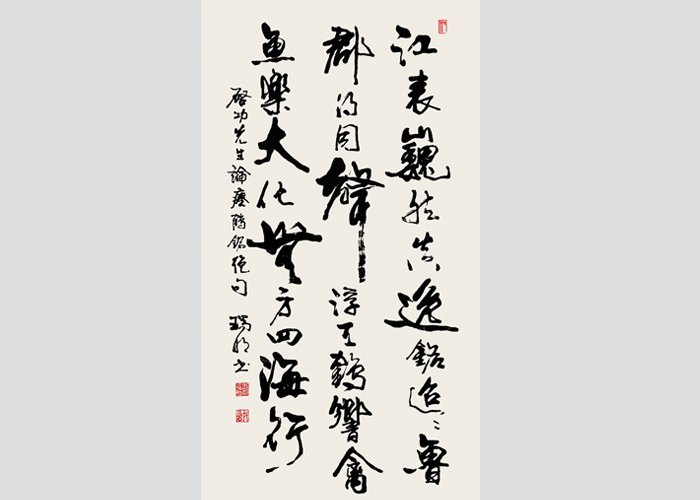 江表巍然真逸銘迢々魯
郡得同聲浮天鶴響禽
魚樂大化無方四海行
啓功先生論瘞鶴銘絶句
瑞明书